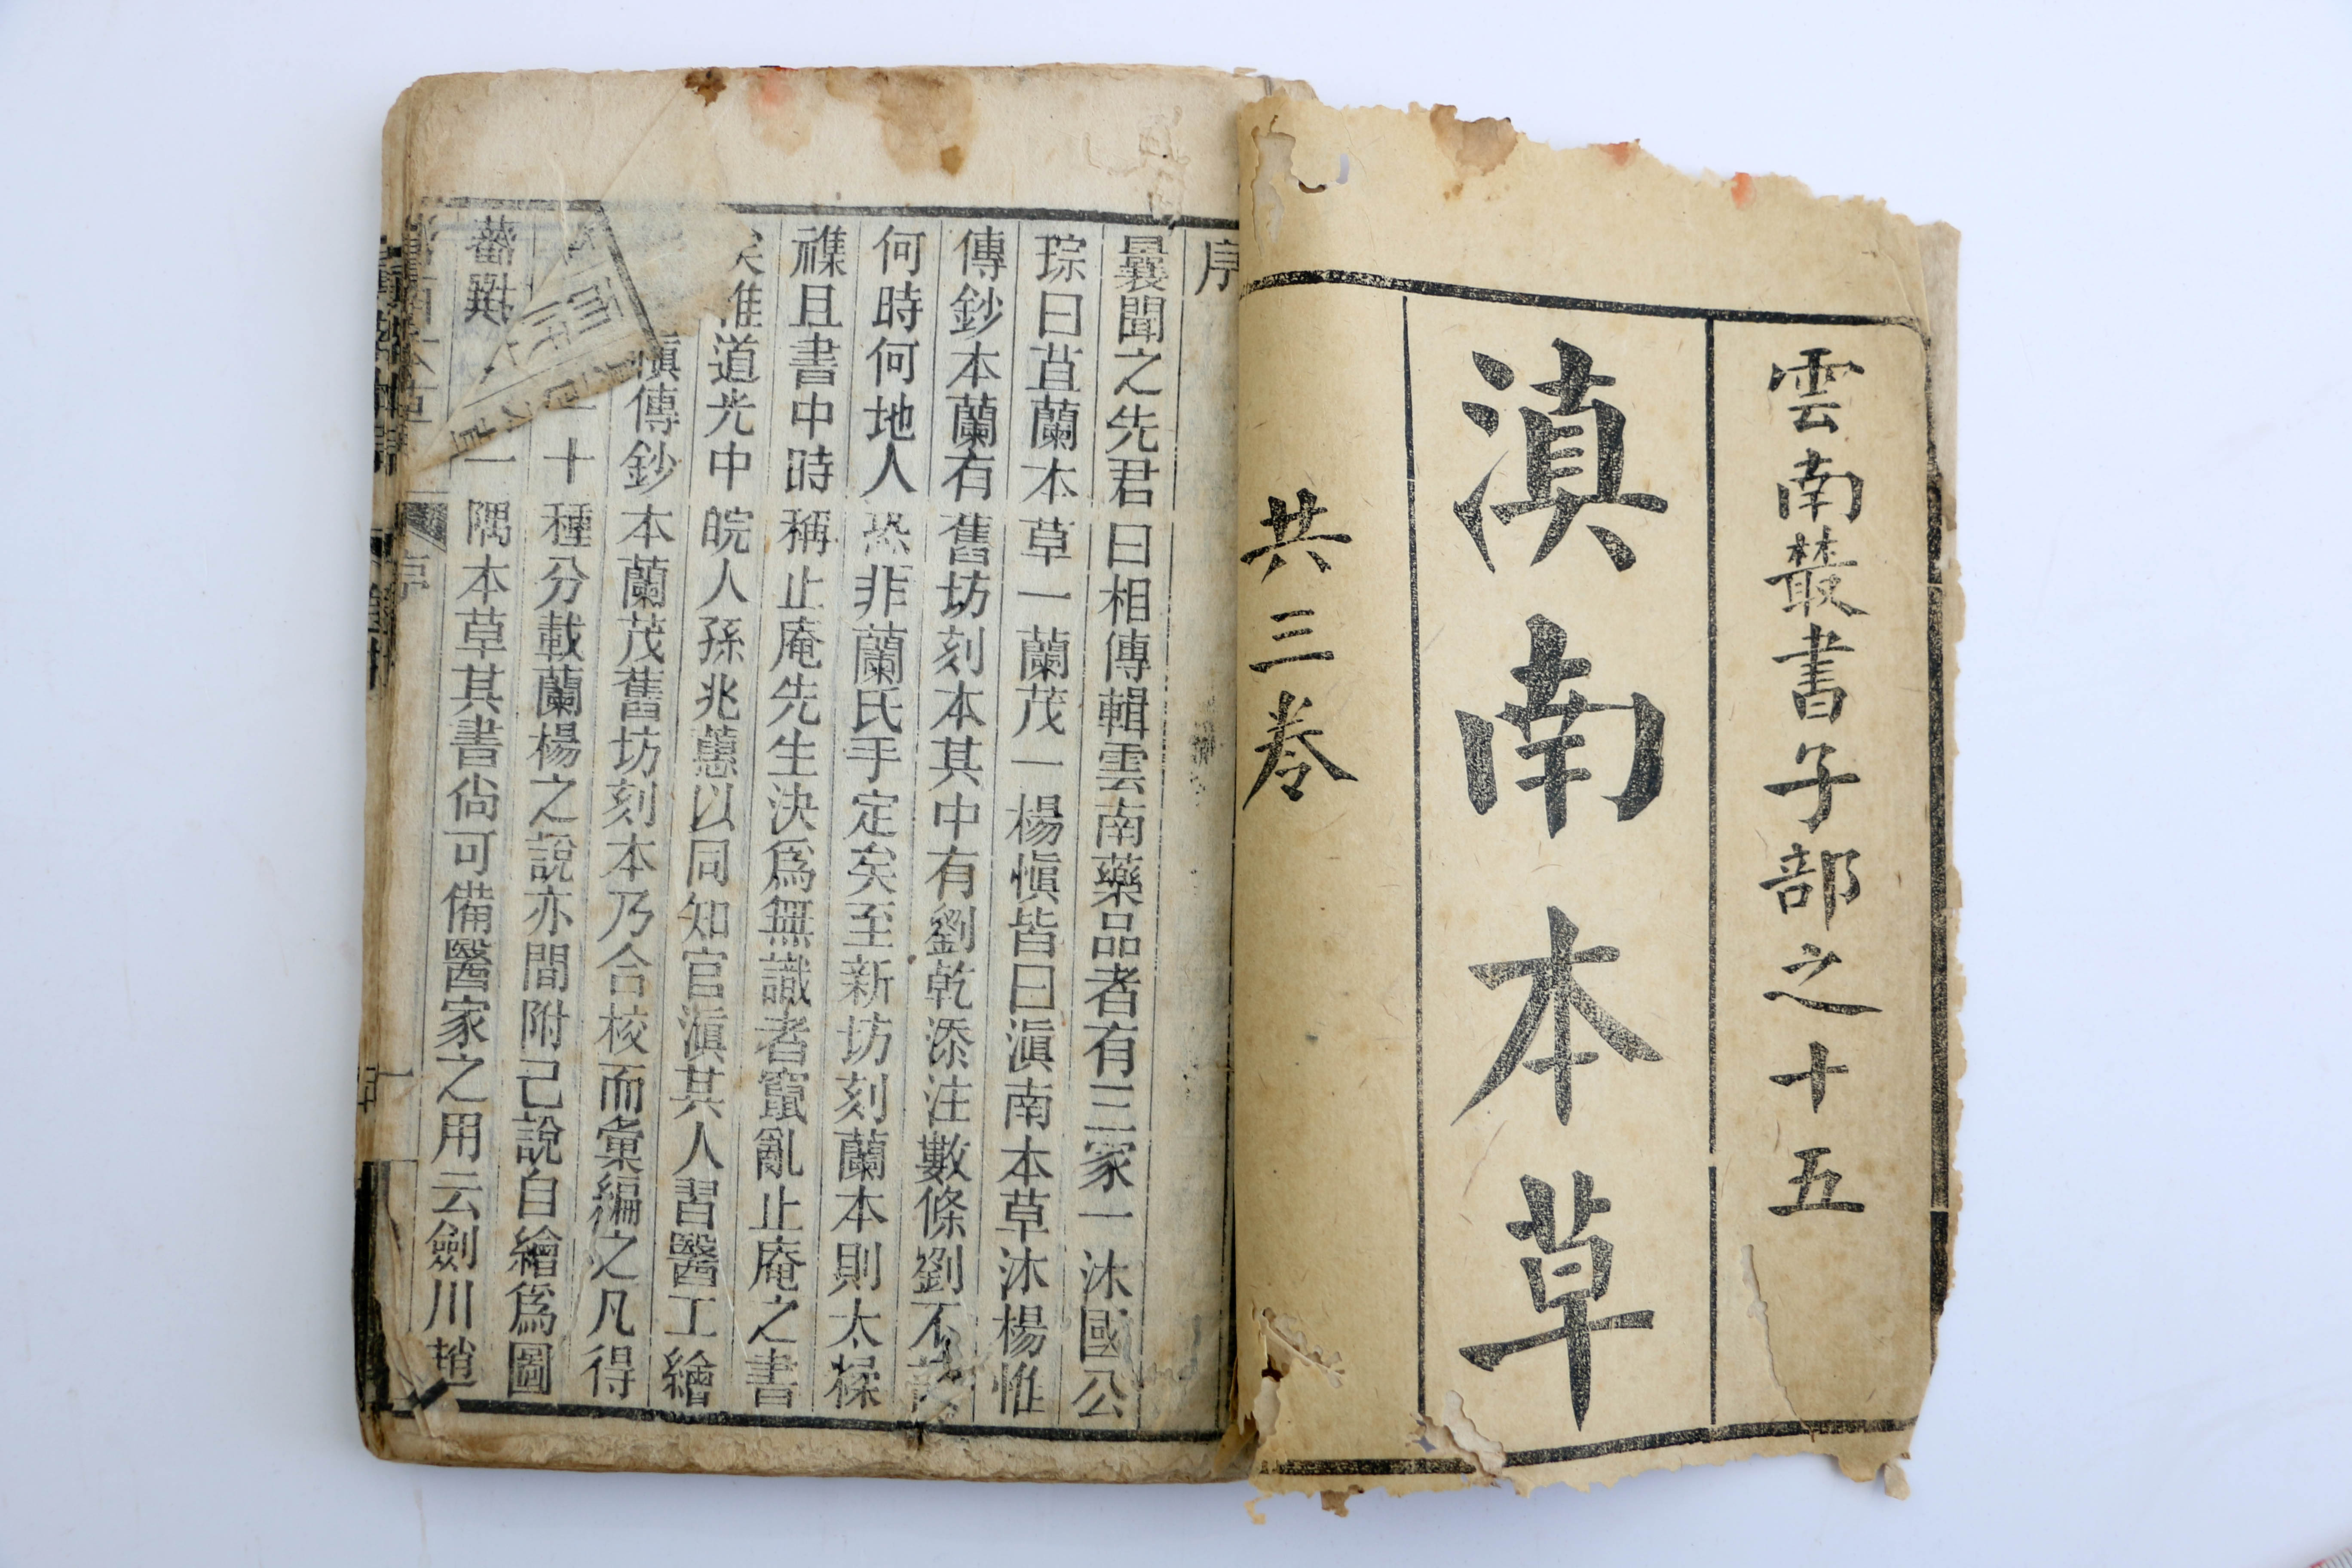 雲南叢書子部之十五
滇南本草
共三卷
序
曩聞之先君曰相傳輯雲南藥品者有三家一沐國公
琮曰苴蘭本草一蘭茂一楊愼皆曰滇南本草沐楊惟
傳鈔本蘭有舊坊刻本其中有劉乾添注數條劉不
何時何地人恐非蘭氏手定矣至新坊刻蘭本則太糅
襍且書中時稱止庵先生決爲無識者竄亂止庵之書
矣惟道光中皖人孫兆蕙以同知官滇其人習醫工繪
滇傳鈔本蘭茂舊坊刻本乃合校而彙編之凡得
二十種分載蘭楊之說亦間附己說自繪爲圖
一隅本草其書尙可備醫家之用云劍川趙
藩跋
序